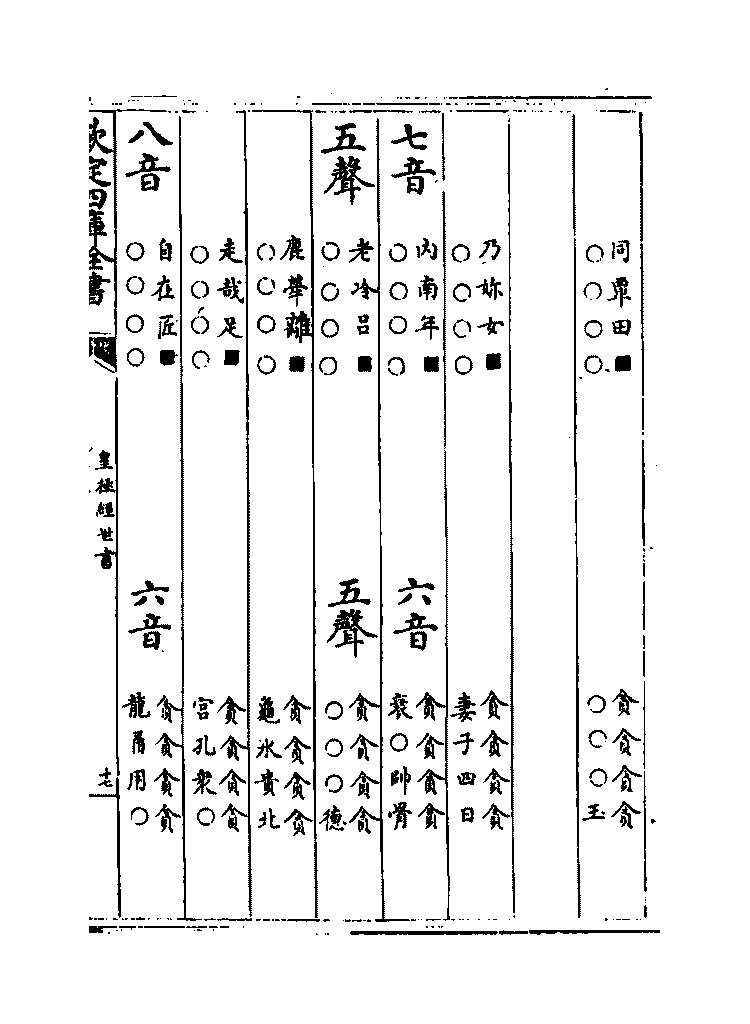 同覃田■
○○○○
貪貪貪貪
○○○玉
乃妳女■
○○○○
貪貪貪貪
妻子四日
七音
内南年■
○○○○
六音
貪貪貪貪
衰○帥骨
五聲
老冷呂■
○○○○
五聲
貪貪貪貪
○○○德
鹿犖離■
○○○○
貪貪貪貪
龜水貴北
走哉足■
○○○○
貪貪貪貪
宮孔衆○
八音
自在匠■
○○○○
六音
貪貪貪貪
龍甬用○
欽定四庫全書
皇極經世書
十七